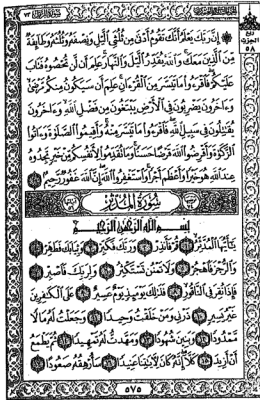 ۞ إِنَّ رَبَّكَ يَعْلَمُ أَنَّكَ تَقُومُ أَدْنَىٰ مِن ثُلُثَيِ ٱلَّيْلِ وَنِصْفَهُۥ وَثُلُثَهُۥ وَطَآئِفَةٌ
مِّنَ ٱلَّذِينَ مَعَكَ ۚ وَٱللَّهُ يُقَدِّرُ ٱلَّيْلَ وَٱلنَّهَارَ ۚ عَلِمَ أَن لَّن تُحْصُوهُ فَتَابَ
عَلَيْكُمْ ۖ فَٱقْرَءُوا۟ مَا تَيَسَّرَ مِنَ ٱلْقُرْءَانِ ۚ عَلِمَ أَن سَيَكُونُ مِنكُم مَّرْضَىٰ ۙ
وَءَاخَرُونَ يَضْرِبُونَ فِى ٱلْأَرْضِ يَبْتَغُونَ مِن فَضْلِ ٱللَّهِ ۙ وَءَاخَرُونَ
يُقَٰتِلُونَ فِى سَبِيلِ ٱللَّهِ ۖ فَٱقْرَءُوا۟ مَا تَيَسَّرَ مِنْهُ ۚ وَأَقِيمُوا۟ ٱلصَّلَوٰةَ وَءَاتُوا۟
ٱلزَّكَوٰةَ وَأَقْرِضُوا۟ ٱللَّهَ قَرْضًا حَسَنًا ۚ وَمَا تُقَدِّمُوا۟ لِأَنفُسِكُم مِّنْ خَيْرٍ تَجِدُوهُ
عِندَ ٱللَّهِ هُوَ خَيْرًا وَأَعْظَمَ أَجْرًا ۚ وَٱسْتَغْفِرُوا۟ ٱللَّهَ ۖ إِنَّ ٱللَّهَ غَفُورٌ رَّحِيمٌۢ ٢٠
سُورَةُ المُدَّثِّرِ
بِسْمِ ٱللَّهِ ٱلرَّحْمَٰنِ ٱلرَّحِيمِ
يَٰٓأَيُّهَا ٱلْمُدَّثِّرُ ١ قُمْ فَأَنذِرْ ٢ وَرَبَّكَ فَكَبِّرْ ٣ وَثِيَابَكَ فَطَهِّرْ ٤
وَٱلرُّجْزَ فَٱهْجُرْ ٥ وَلَا تَمْنُن تَسْتَكْثِرُ ٦ وَلِرَبِّكَ فَٱصْبِرْ ٧
فَإِذَا نُقِرَ فِى ٱلنَّاقُورِ ٨ فَذَٰلِكَ يَوْمَئِذٍ يَوْمٌ عَسِيرٌ ٩ عَلَى ٱلْكَٰفِرِينَ
غَيْرُ يَسِيرٍ ١٠ ذَرْنِى وَمَنْ خَلَقْتُ وَحِيدًا ١١ وَجَعَلْتُ لَهُۥ مَالًا
مَّمْدُودًا ١٢ وَبَنِينَ شُهُودًا ١٣ وَمَهَّدتُّ لَهُۥ تَمْهِيدًا ١٤ ثُمَّ يَطْمَعُ
أَنْ أَزِيدَ ١٥ كَلَّآ ۖ إِنَّهُۥ كَانَ لِءَايَٰتِنَا عَنِيدًا ١٦ سَأُرْهِقُهُۥ صَعُودًا ١٧
٥٧٥
ربع
الحزب
٥٨
٧٣